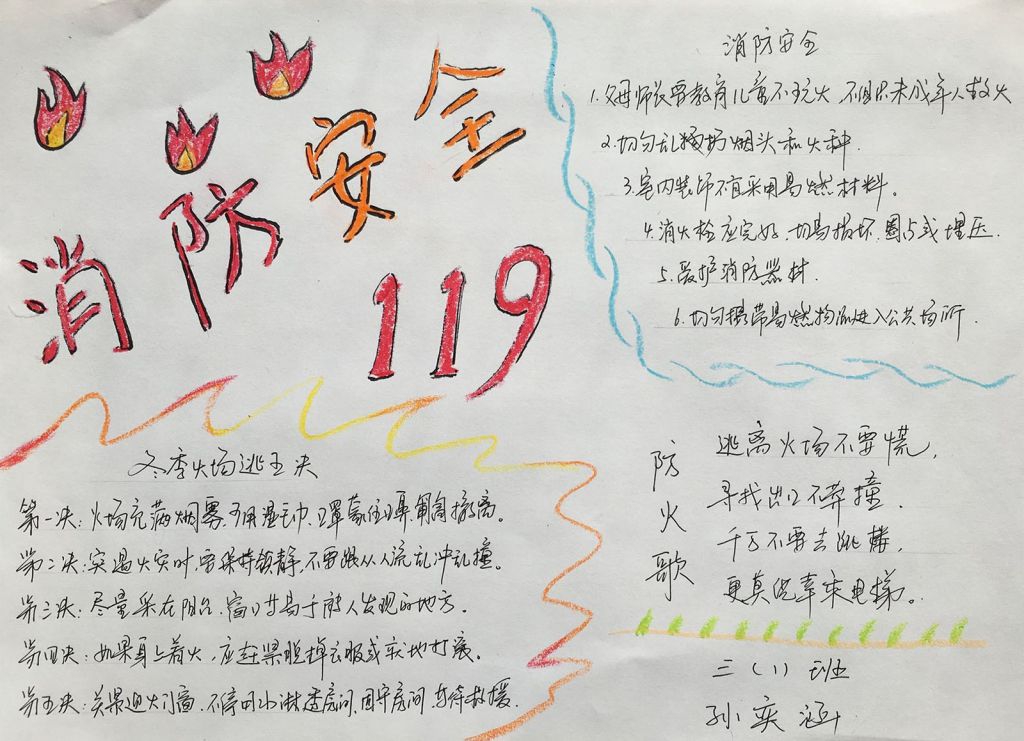 消防安全
119
消防安全
1.父母师长要教育儿童不玩火，不组织未成年人救火
2.切勿乱扔烟头和火种.
3.室内装饰不宜采用易燃材料。
4.消火栓应完好，切勿损坏、圈占或埋压.
5.爱护消防器材.
6.切勿携带易燃物品进入公共场所.
冬季火场逃五决
第一决：火场充满烟雾，可用湿毛巾、口罩蒙住口鼻，匍匐撤离。
第二决：突遇火灾时，要保持镇静，不要跟从人流乱冲乱撞。
第三决：尽量采在阳台、窗口等易于被人发现的地方。
第四决：如果身上着火，应赶紧脱掉衣服或就地打滚。
第五决：关紧迎火门窗，不停用水淋透房间，固守房间，等待救援.
防火歌
逃离火场不要慌，
寻找出口不乱撞.
千万不要去跳楼，
更莫侥幸乘电梯。
三（1）班
孙奕涵